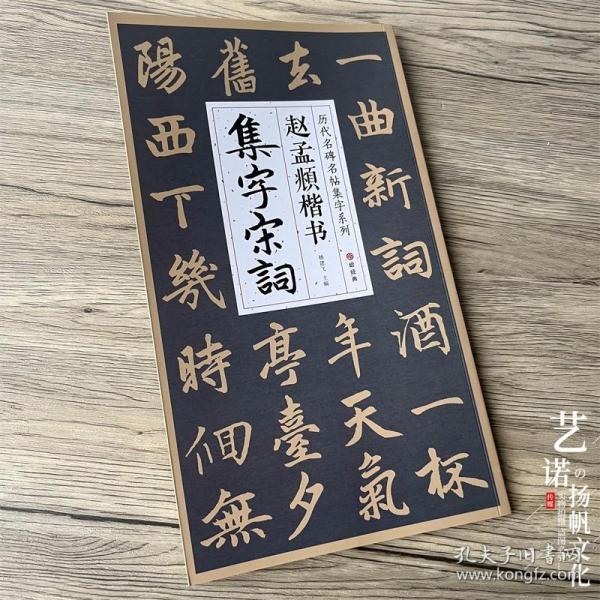 一曲新詞酒一杯
去年天氣
舊亭臺夕
陽西下幾時佪無
历代名碑名帖集字系列
赵孟頫楷书
集字宋詞
杨建飞 主编
经典
艺诺の扬帆文化
传媒
孔夫子旧书网
www.kongfz.com